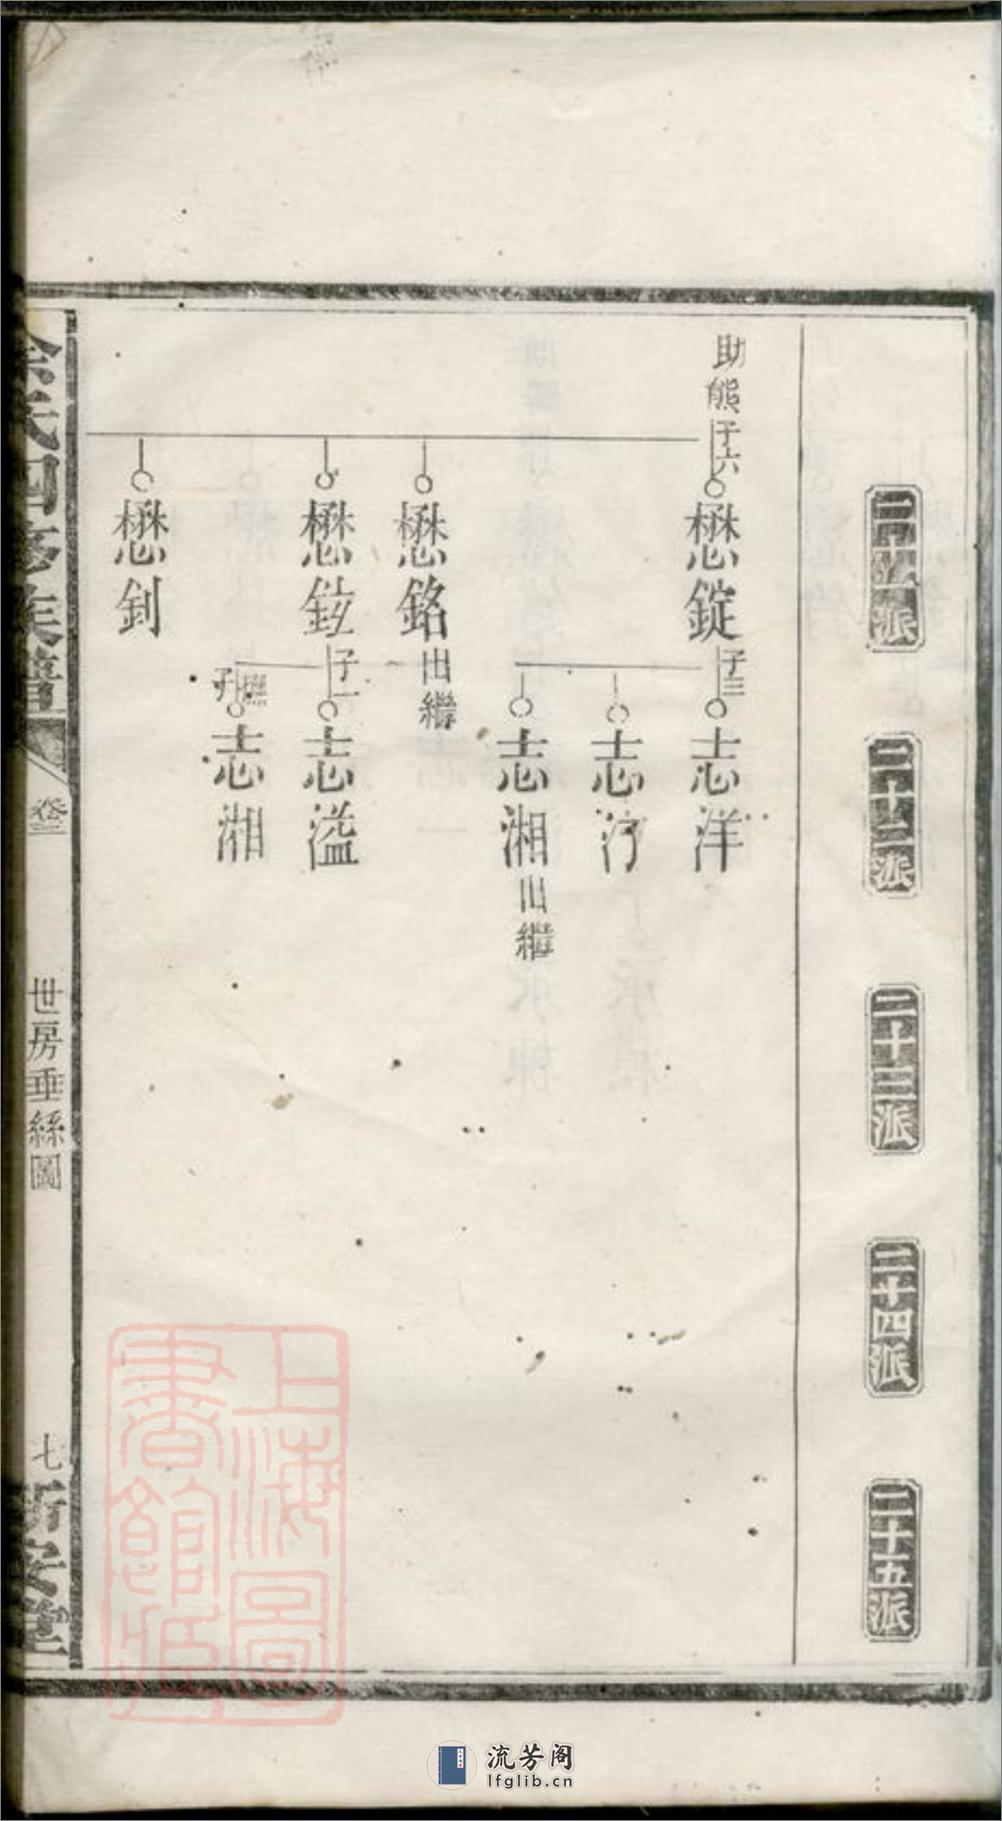 二十一派
二十二派
二十三派
二十四派
二十五派
助熊子六
懋錠子三
志洋
志汿
志湘出繼
懋銘出繼
懋鉉子一
志溢
撫子
志湘
懋釗
氏四修族譜
卷二
世房垂絲圖
七
新安堂
上海圖書館藏
流芳阁
lfglib.cn